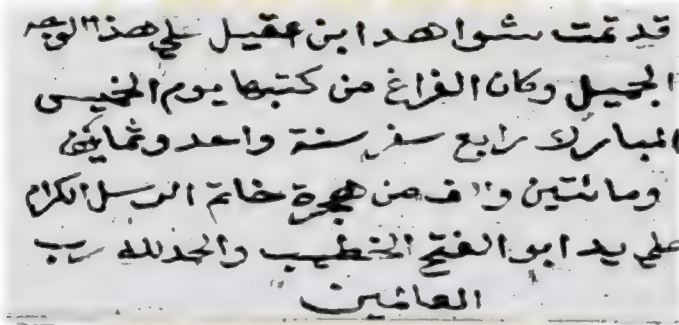 قد تمت شواهد ابن عقيل على هذا الوجه
الجميل وكان الفراغ من كتبها يوم الخميس
المبارك رابع سفر سنة واحد وثمانين
ومائتين والف من هجرة خاتم الرسل الكرام
على يد ابو الفتح الخطيب والحمد لله رب
العالمين